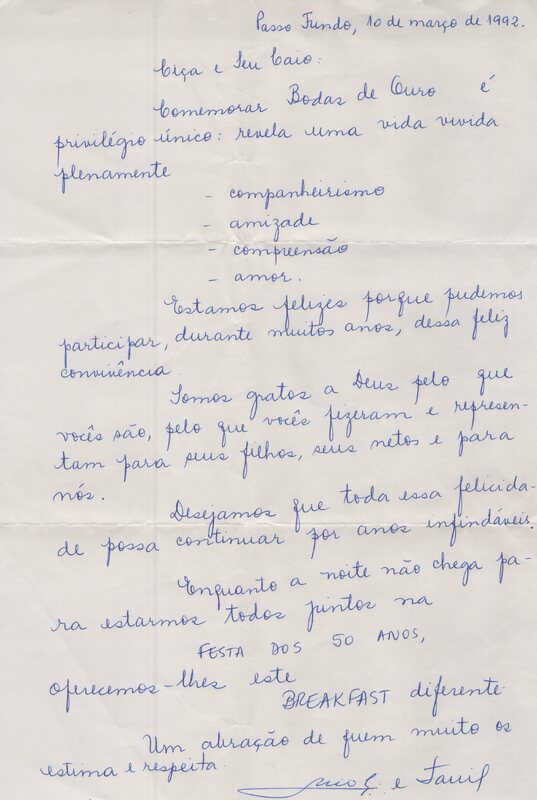 Passo Fundo, 10 de março de 1992.
Ciça e Seu Caio:
Comemorar Bodas de Ouro é
privilégio único: revela uma vida vivida
plenamente
- companheirismo
- amizade
- compreensão
- amor.
Estamos felizes porque pudemos
participar, durante muitos anos, dessa feliz
convivência.
Somos gratos a Deus pelo que
vocês são, pelo que vocês fizeram e represen-
tam para seus filhos, seus netos e para
nós.
Desejamos que toda essa felicida-
de possa continuar por anos infindáveis.
Enquanto a noite não chega pa-
ra estarmos todos juntos na
FESTA DOS 50 ANOS,
oferecemos-lhes este
BREAKFAST diferente.
Um abração de quem muito os
estima e respeita.
e